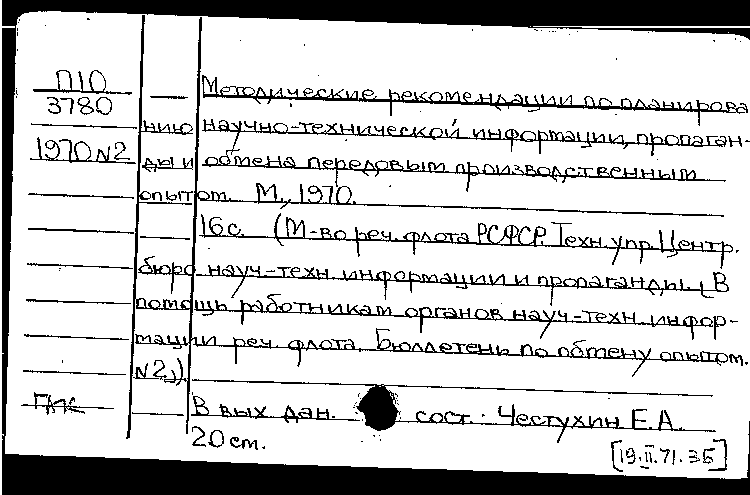 П10
3780
1970 N2
Методические рекомендации по планирова
нию научно-технической информации, пропаган-
ды и обмена передовым производственным
опытом. М., 1970.
16 с. (М-во реч. флота РСФСР. Техн. упр. Центр.
бюро науч-техн. информации и пропаганды. В
помощь работникам органов науч-техн. инфор-
мации реч. флота. Бюллетень по обмену опытом.
N2.)).
В вых дан. сост.: Честухин Е.А.
20 см.
[19.II.71. 3Б]